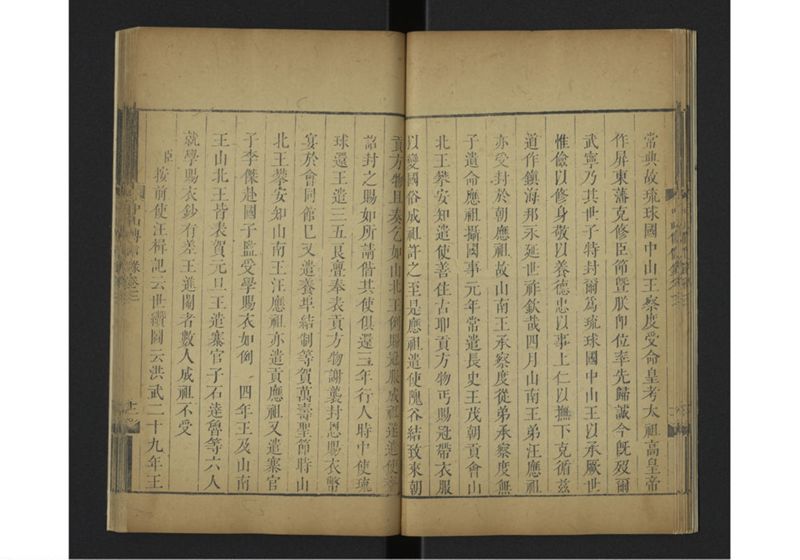 常典故琉球國中山王察度受命皇考太祖高皇帝
作屏東藩克修臣節曁朕卽位率先歸誠今旣歿爾
武寧乃其世子特封爾爲琉球國中山王以承厥世
惟儉以修身敬以養德忠以事上仁以撫下克循茲
道作鎮海邦永延世祚欽哉四月山南王弟汪應祖
亦受封於朝應祖故山南王承察度從弟承察度無
子遺命應祖攝國事元年常遣長史王茂朝貢會山
北王攀安知遣使善住古耶貢方物丐賜冠帶衣服
以變國俗成祖許之至是應祖遣使隗谷結致來朝
貢方物且奏乞如山北王例賜冠服成祖遣使
詔封之賜如所請偕其使俱還三年行人時中使琉
球還王遣三五良亹奉表貢方物謝襲封恩賜衣幣
宴於會同館已又遣養埠結制等賀萬壽聖節時山
北王攀安知山南王汪應祖亦遣貢應祖又遣寨官
子李傑赴國子監受學賜衣如例 四年王及山南
王山北王皆表賀元旦王遣寨官子石達魯等六人
就學賜衣鈔有差王進閹者數人成祖不受
臣按前使汪楫記云世纘圖云洪武二十九年王
中山傳信錄卷三